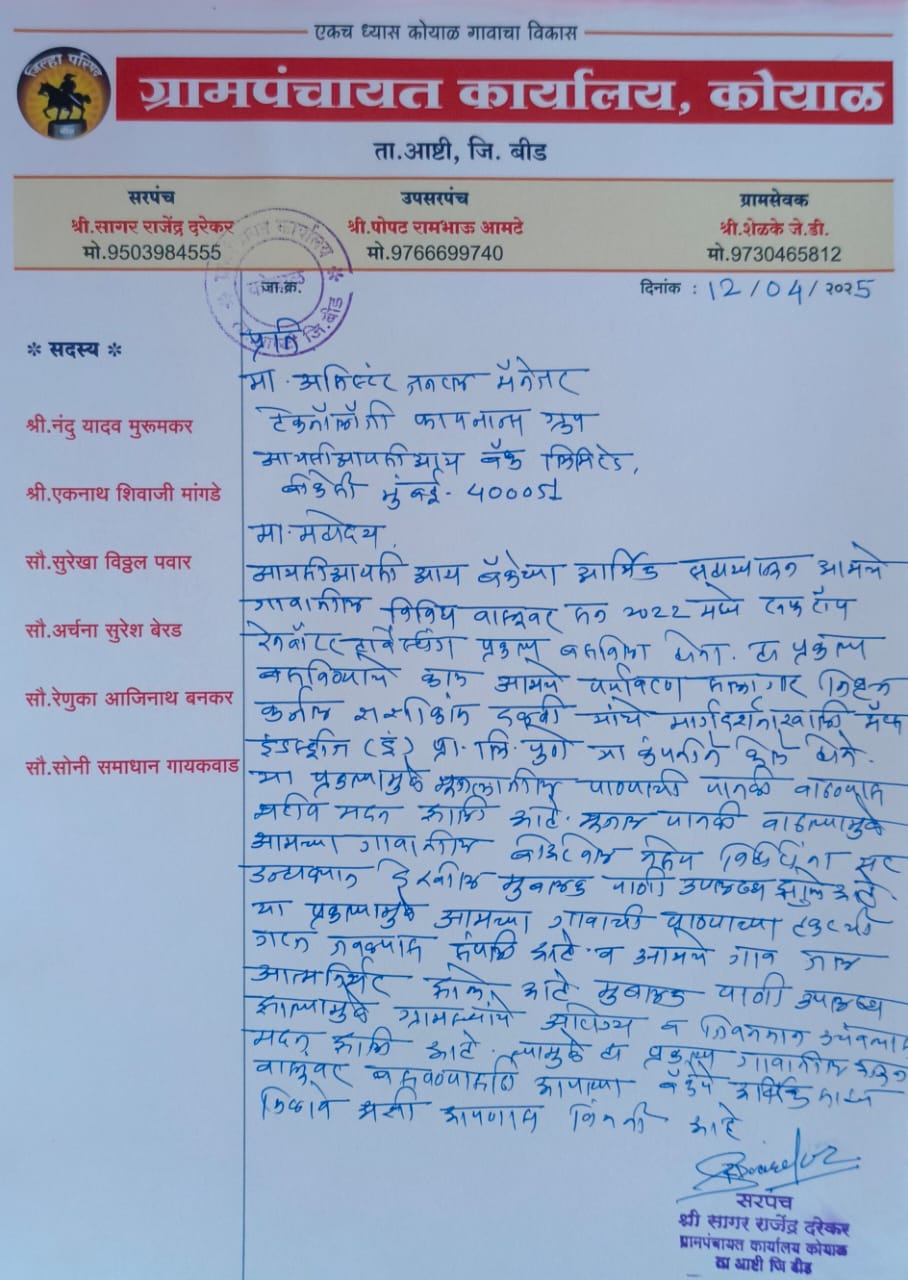 एकच ध्यास कोयाळ गावाचा विकास
जिल्हा परिषद
बीड
ग्रामपंचायत कार्यालय, कोयाळ
ता.आष्टी, जि. बीड
सरपंच
श्री.सागर राजेंद्र दरेकर
मो.9503984555
उपसरपंच
श्री.पोपट रामभाऊ आमटे
मो.9766699740
ग्रामसेवक
श्री.शेळके जे.डी.
मो.9730465812
जा.क्र.
दिनांक : 12/04/२०२5
* सदस्य *
श्री.नंदु यादव मुरूमकर
श्री.एकनाथ शिवाजी मांगडे
सौ.सुरेखा विठ्ठल पवार
सौ.अर्चना सुरेश बेरड
सौ.रेणुका आजिनाथ बनकर
सौ.सोनी समाधान गायकवाड
प्रति
मा. असिस्टंट जनरल मॅनेजर
टेक्नॉलॉजी फायनान्स ग्रुप
आयसीआयसीआय बँक लिमिटेड,
बीकेसी मुंबई - 400051
मा. महोदय
आयसीआयसी आय बँकेच्या आर्थिक सहाय्यातून आमचे
गावातील विविध वास्तूवर सन २०22 मध्ये रूफ टॉप
रेनवॉटर हार्वेस्टिंग प्रकल्प बसविला होता. हा प्रकल्प
बसविण्याचे काम आमचे पर्यावरण सल्लागार निवृत्त
कर्नल शशिकांत दळवी यांचे मार्गदर्शनाखाली मॅक
इंडस्ट्रीज (ई) प्रा. लि. पुणे या कंपनीने केले होते.
या प्रकल्पामुळे भूजलातील पाण्याची पातळी वाढण्यास
अतीव मदत झाली आहे. भूजल पातळी वाढल्यामुळे
आमच्या गावातील बोअरवेल मध्ये विहिरींना भर
उन्हाळ्यात देखील मुबलक पाणी उपलब्ध झाले आहे.
या प्रकल्पामुळे आमच्या गावाची पाण्याच्या टँकरची
गरज जवळपास संपली आहे. व आमचे गाव जल
आत्मनिर्भर झाले आहे मुबलक पाणी उपलब्ध
झाल्यामुळे ग्रामस्थांचे आरोग्य व जिवनमान उंचवण्यास
मदत झाली आहे. त्यामुळे हा प्रकल्प गावातील
वास्तूवर बसवण्यासाठी आपल्या बँकेचे आर्थिक सहाय्य
मिळावे अशी आपणास विनंती आहे
सरपंच
श्री सागर राजेंद्र दरेकर
ग्रामपंचायत कार्यालय कोयाळ
ता आष्टी जि बीड